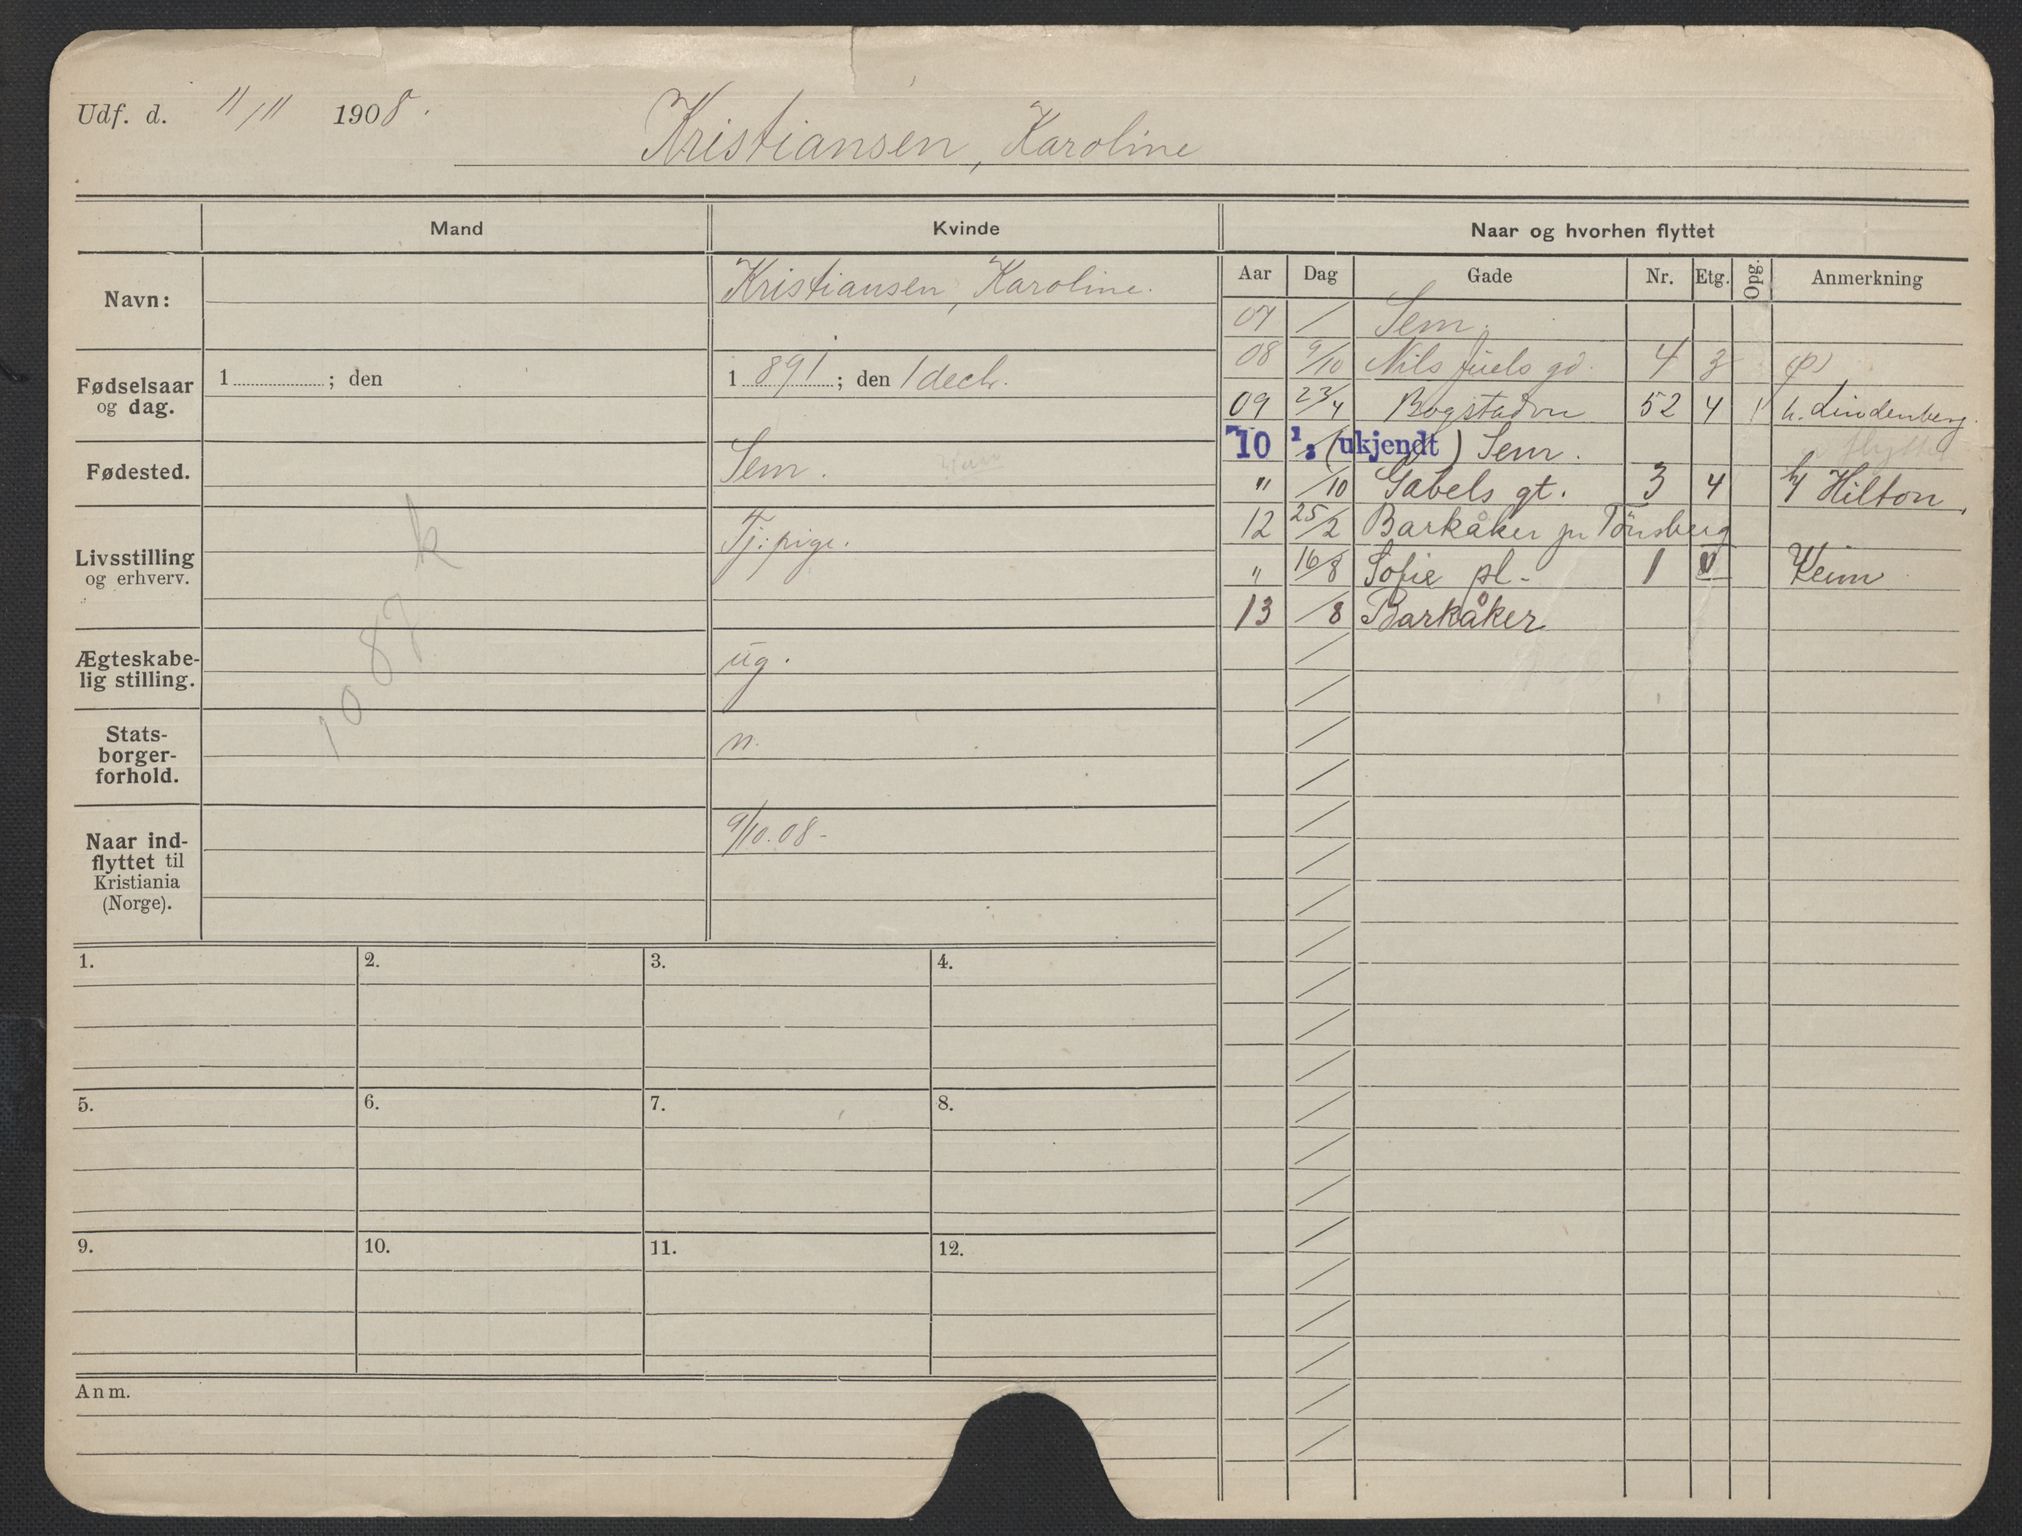 Udf. d. 11/11 1908.
Kristiansen, Karoline
Mand
Kvinde
Naar og hvorhen flyttet
Navn:
Kristiansen, Karoline.
Fødselsaar
og dag.
1 ; den
1 891 ; den 1 decbr.
Fødested.
Sem.
Livsstilling
og erhverv.
Tj:pige.
Ægteskabe-
lig stilling.
ug.
Stats-
borger-
forhold.
n.
Naar ind-
flyttet til
Kristiania
(Norge).
9/10.08-
k
1087
Aar Dag Gade Nr. Etg. Opg. Anmerkning
07 / Sem.
08 9/10 Nils Juels gd. 4 3 (p)
09 23/4 Bogstadvn 52 4 1 h. Lindenberg.
flyttet
"10 1: (ukjendt) Sem.
" /10 Gabels gt. 3 4 h/ Hilton,
12 25/2 Barkåker pr Tönsberg
" 16/8 Sofie pl- 1 V Keim
13 /8 Barkåker
1.
2.
3.
4.
5.
6.
7.
8.
9.
10.
11.
12.
Anm.